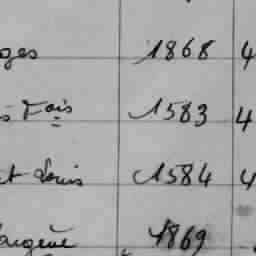 ges 1868 4
s Fois 1583 4
t Louis 1584 4
1869